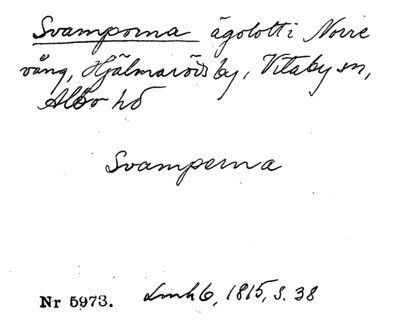 Svamporna ägolott i Norre
vång, Hjälmaröds by, Vitaby sn,
Albo hd
Svamperna
Nr 5973. Lmh 6, 1815, s. 38